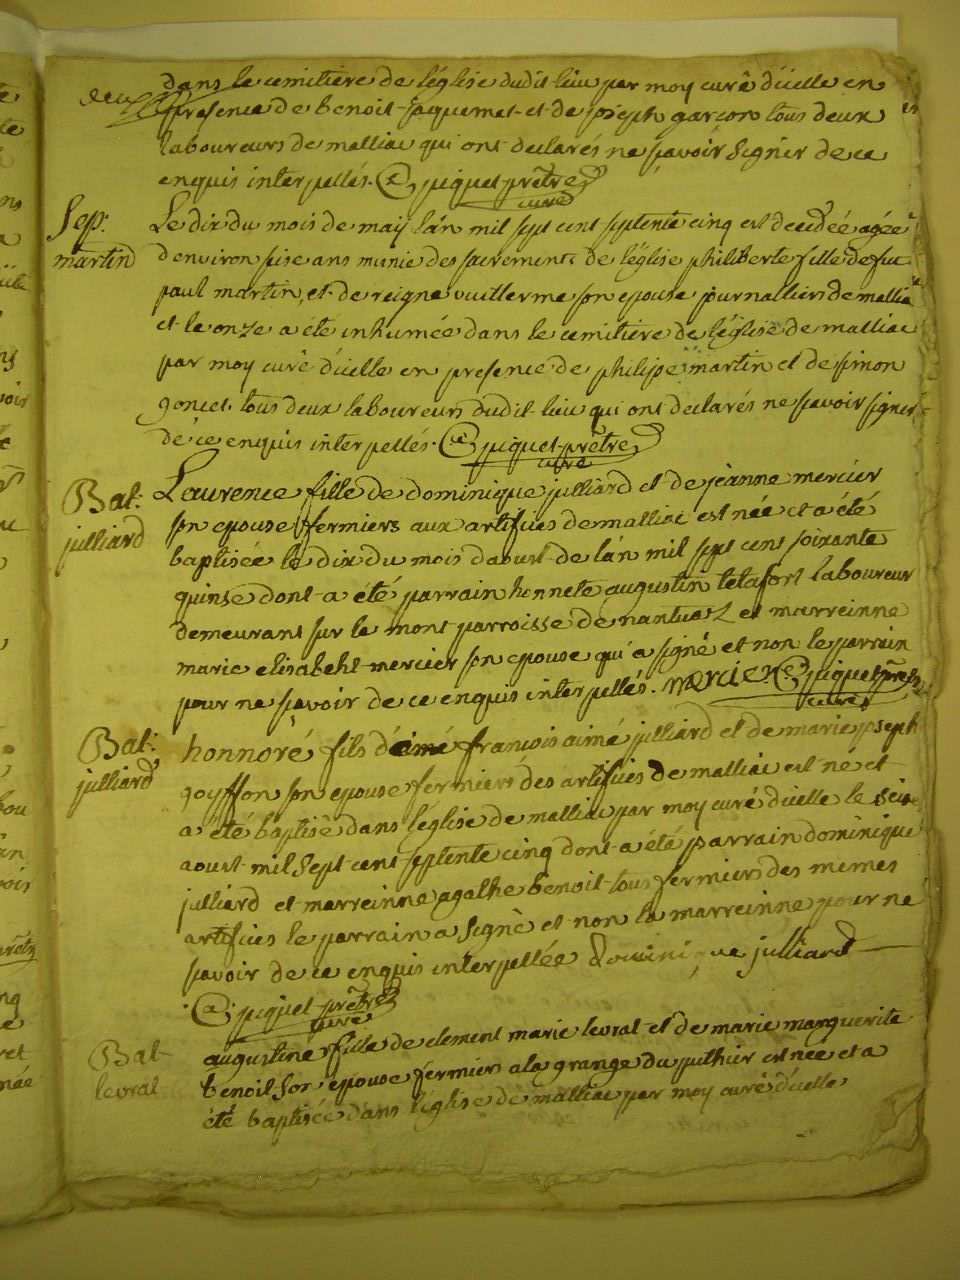 dans le cemitiére de léglise dudit lieu par moy curé dicelle en
deux
presence de benoit jaquemet et de joseph garçon tous deux
laboureurs de malliac qui ont declarés ne sçavoir signer de ce
enquis interpellés. piquet prêtre
curé
Sep:
martin
Le dix du mois de may lán mil sept cent septente cinq est decedée agée
denviron seise ans munie des sacrements de léglise philiberte fille de fut
paul martin, et de reigne vuillerme son epouse journalliers de mallia
et le onze a été inhumée dans le cemitiére de léglise de malliac
par moy curé dicelle en presence de philipe martin et de simon
goncet tous deux laboureurs dudit lieu qui ont declarés ne sçavoir signer
de ce enquis interpellés. piquet prêtre
curé
Bat:
julliard
Laurence fille de dominique julliard et de jeanne mercier
son epouse fermiers aux artifices de malliac est née et a été
baptisée le dix du mois daoust de lán mil sept cent soixante
quinse dont a été parrain honnete augustin tetafort laboureur
demeurant sur le mont parroisse de nantua et marreinne
marie elisabeht mercier son epouse qui a signé et non le parrain
pour ne sçavoir de ce enquis interpellés. mercier piquet prêtre
curé
Bat:
julliard
honnoré fils daimé françois aimé julliard et de marie joseph
goyffon son epouse fermiers des artifices de malliac est né et
a été baptisé dans léglise de malliac par moy curé dicelle le seise
aoust mil sept cent septente cinq dont a été parrain dominique
julliard et marreinne agathe benoit tous fermiers des memes
artifices le parrain a signé et non la marreinne pour ne
sçavoir de ce enquis interpellée Dominique julliard
piquet prêtre
curé
Bat
levrat
augustine fille de clement marie levrat et de marie marguerite
benoit son epouse fermiers a la grange du puthier est née et a
été baptisée dans léglise de malliac par moy curé dicelle